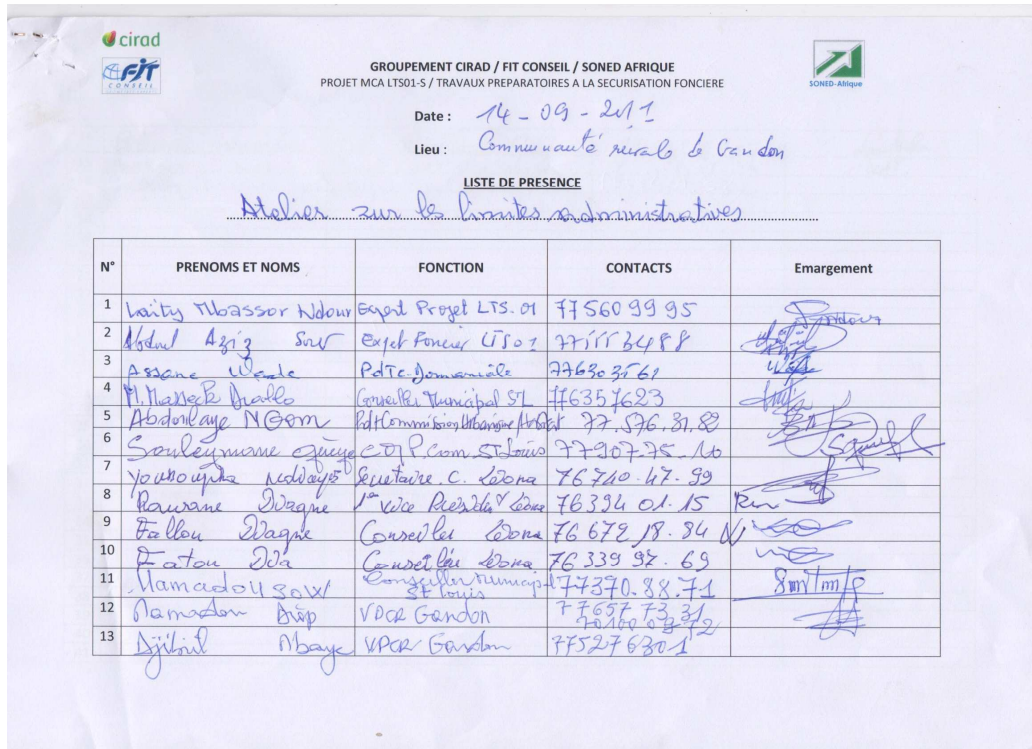 cirad
FIT
CONSEIL
SONED-Afrique
GROUPEMENT CIRAD / FIT CONSEIL / SONED AFRIQUE
PROJET MCA LTS01-S / TRAVAUX PREPARATOIRES A LA SECURISATION FONCIERE
Date : 14-09-2011
Lieu : Communauté rurale de Gandon
LISTE DE PRESENCE
Atelier sur les limites administratives
N° PRENOMS ET NOMS FONCTION CONTACTS Emargement
1 Laity Mbassor Ndour Expert Projet LTS.01 77560 99 95
2 Abdoul Aziz Sow Expert Foncier LTS01
3 Assane Wade PdTe Domaniale 776303561
4 M. Masseck Diallo Conseiller Municipal SL 76357623
5 Abdoulaye NGom PdtCommission Urbanisme 77.576.31.82
6 Souleymane Com. St Louis 77907.75.10
7 Youssoupha Ndiaye Secrétaire. C. 76740.47.99
8 Ousmane Diagne 1er Vice 76394 01.15
9 Fallou Diagne Conseiller 76 672.18.84
10 Fatou Dia 76 339 97.69
11 Mamadou Sow Conseiller Municipal St Louis 77370.88.71
12 Mamadou Diop VPCR Gandon 77657 73 31
13 Djibril Mbaye VPCR Gandon 775276301